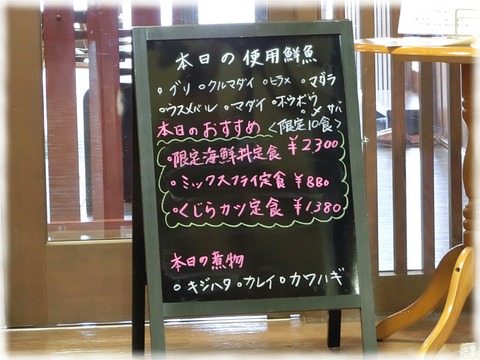 本日の使用鮮魚
○ブリ ○クルマダイ ○ヒラメ ○マダラ
○ウスメバル ○マダイ ○ホウボウ
○〆サバ
本日のおすすめ <限定10食>
・限定海鮮丼定食 ¥2300
・ミックスフライ定食 ¥880
・くじらカツ定食 ¥1,380
本日の煮物
○キジハタ ○カレイ ○カワハギ